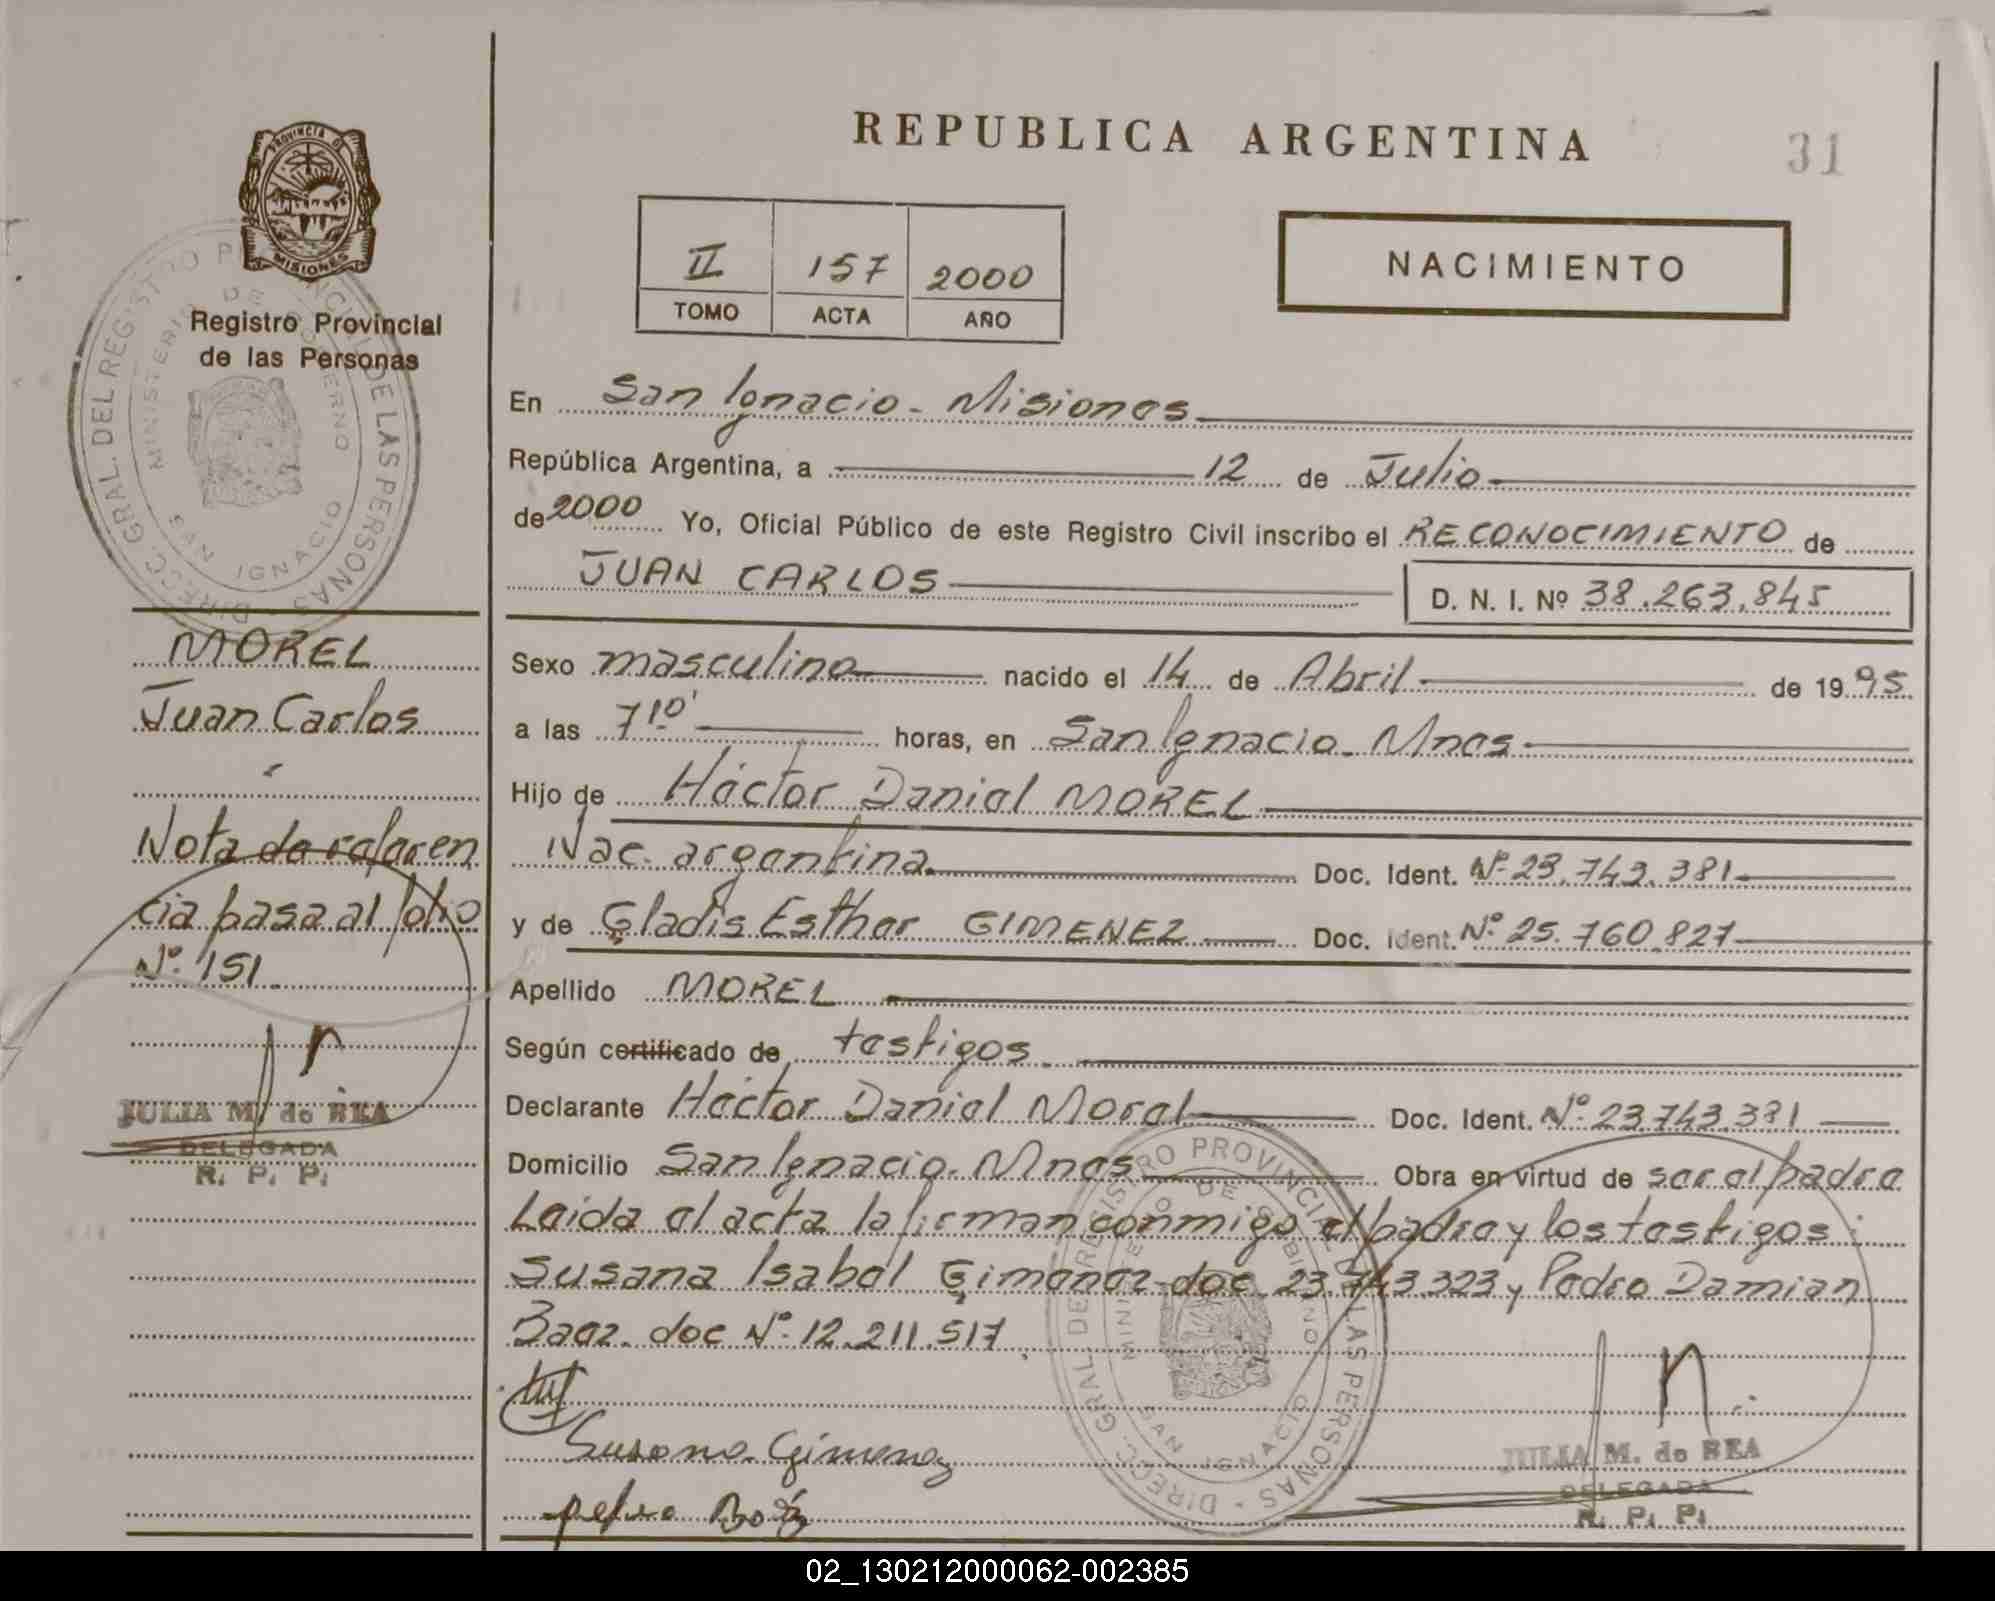 REPUBLICA ARGENTINA
31
PROVINCIA DE
MISIONES
Registro Provincial
de las Personas
DIRECC. GRAL. DEL REGISTRO PROVINCIAL DE LAS PERSONAS
MINISTERIO DE GOBIERNO
SAN IGNACIO
II 157 2000
TOMO ACTA AÑO
NACIMIENTO
En San Ignacio - Misiones
República Argentina, a 12 de Julio
de 2000 Yo, Oficial Público de este Registro Civil inscribo el RECONOCIMIENTO de
JUAN CARLOS D. N. I. Nº 38.263.845
Sexo masculino nacido el 14 de Abril de 1995
a las 7 10' horas, en San Ignacio - Mnes
Hijo de Héctor Daniel MOREL
Nac. argentina Doc. Ident. Nº 23.743.381
y de Gladis Esther GIMENEZ Doc. Ident. Nº 25.760.827
Apellido MOREL
Según certificado de testigos
Declarante Héctor Daniel Morel Doc. Ident. Nº 23.743.381
Domicilio San Ignacio - Mnes Obra en virtud de ser el padre
Leida el acta la firman conmigo el padre y los testigos:
Susana Isabel Gimenez doc 23.743.323 y Pedro Damian
Baez. doc Nº 12.211.517
Susana Gimenez
pedro Baez
JULIA M. de REA
DELEGADA
R. P. P.
DIRECC. GRAL. DEL REGISTRO PROVINCIAL DE LAS PERSONAS
MINISTERIO DE GOBIERNO
SAN IGNACIO
MOREL
Juan Carlos
Nota de referen
cia pasa al folio
Nº 151
JULIA M. de REA
DELEGADA
R. P. P.
02_130212000062-002385